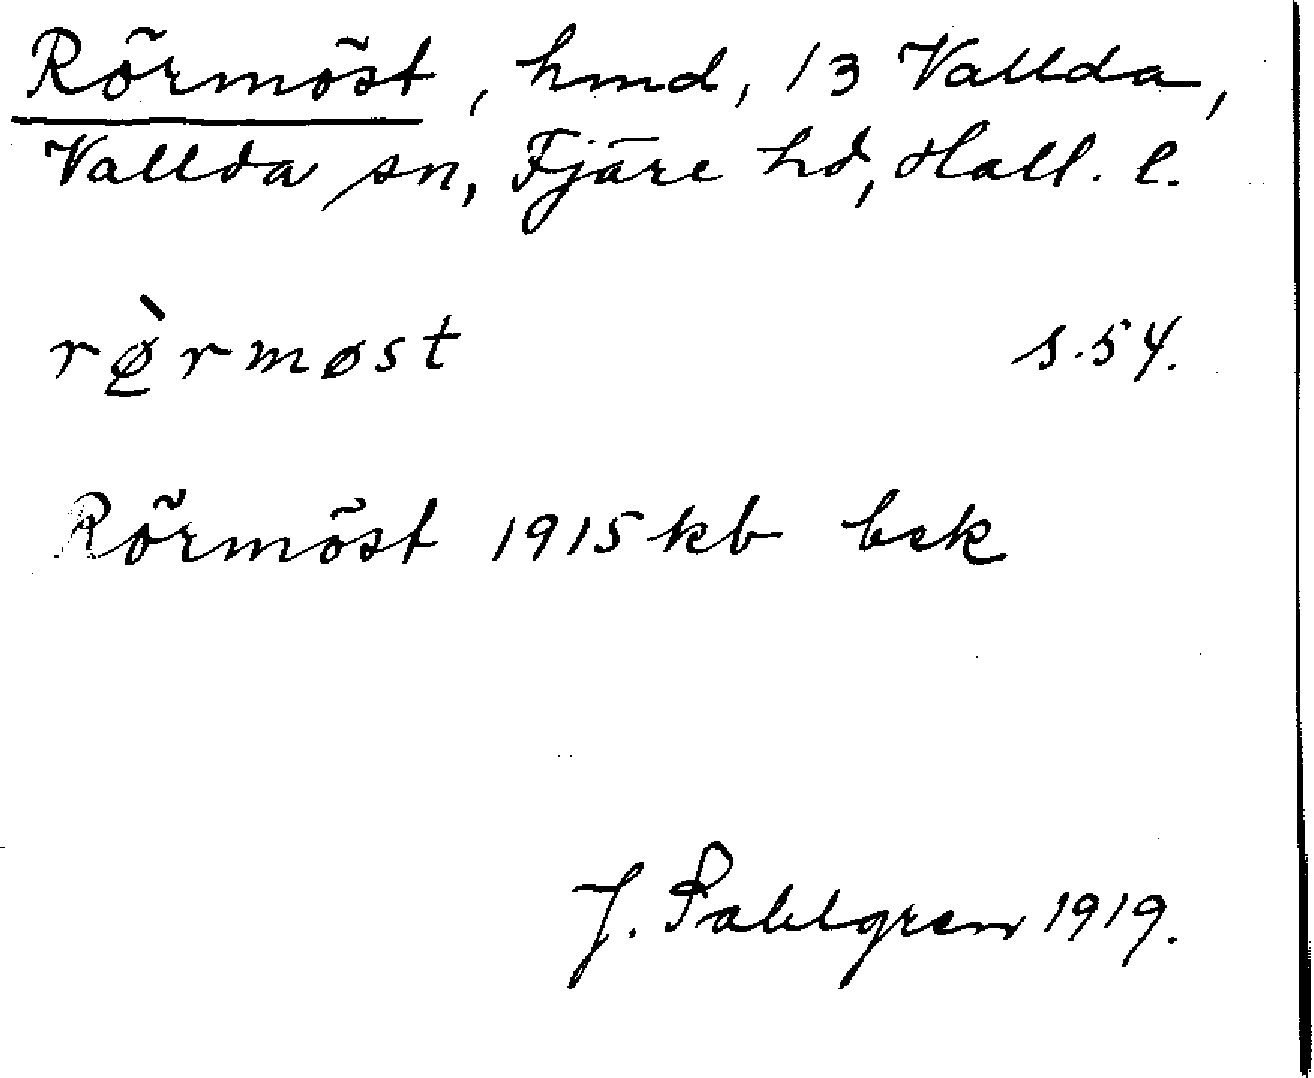 Rörmöst, hmd, 13 Vallda,
Vallda sn, Fjäre hd, Hall. l.
rø̱̀rmøst s.54.
Rörmöst 1915 kb bek
J. Sahlgren 1919.